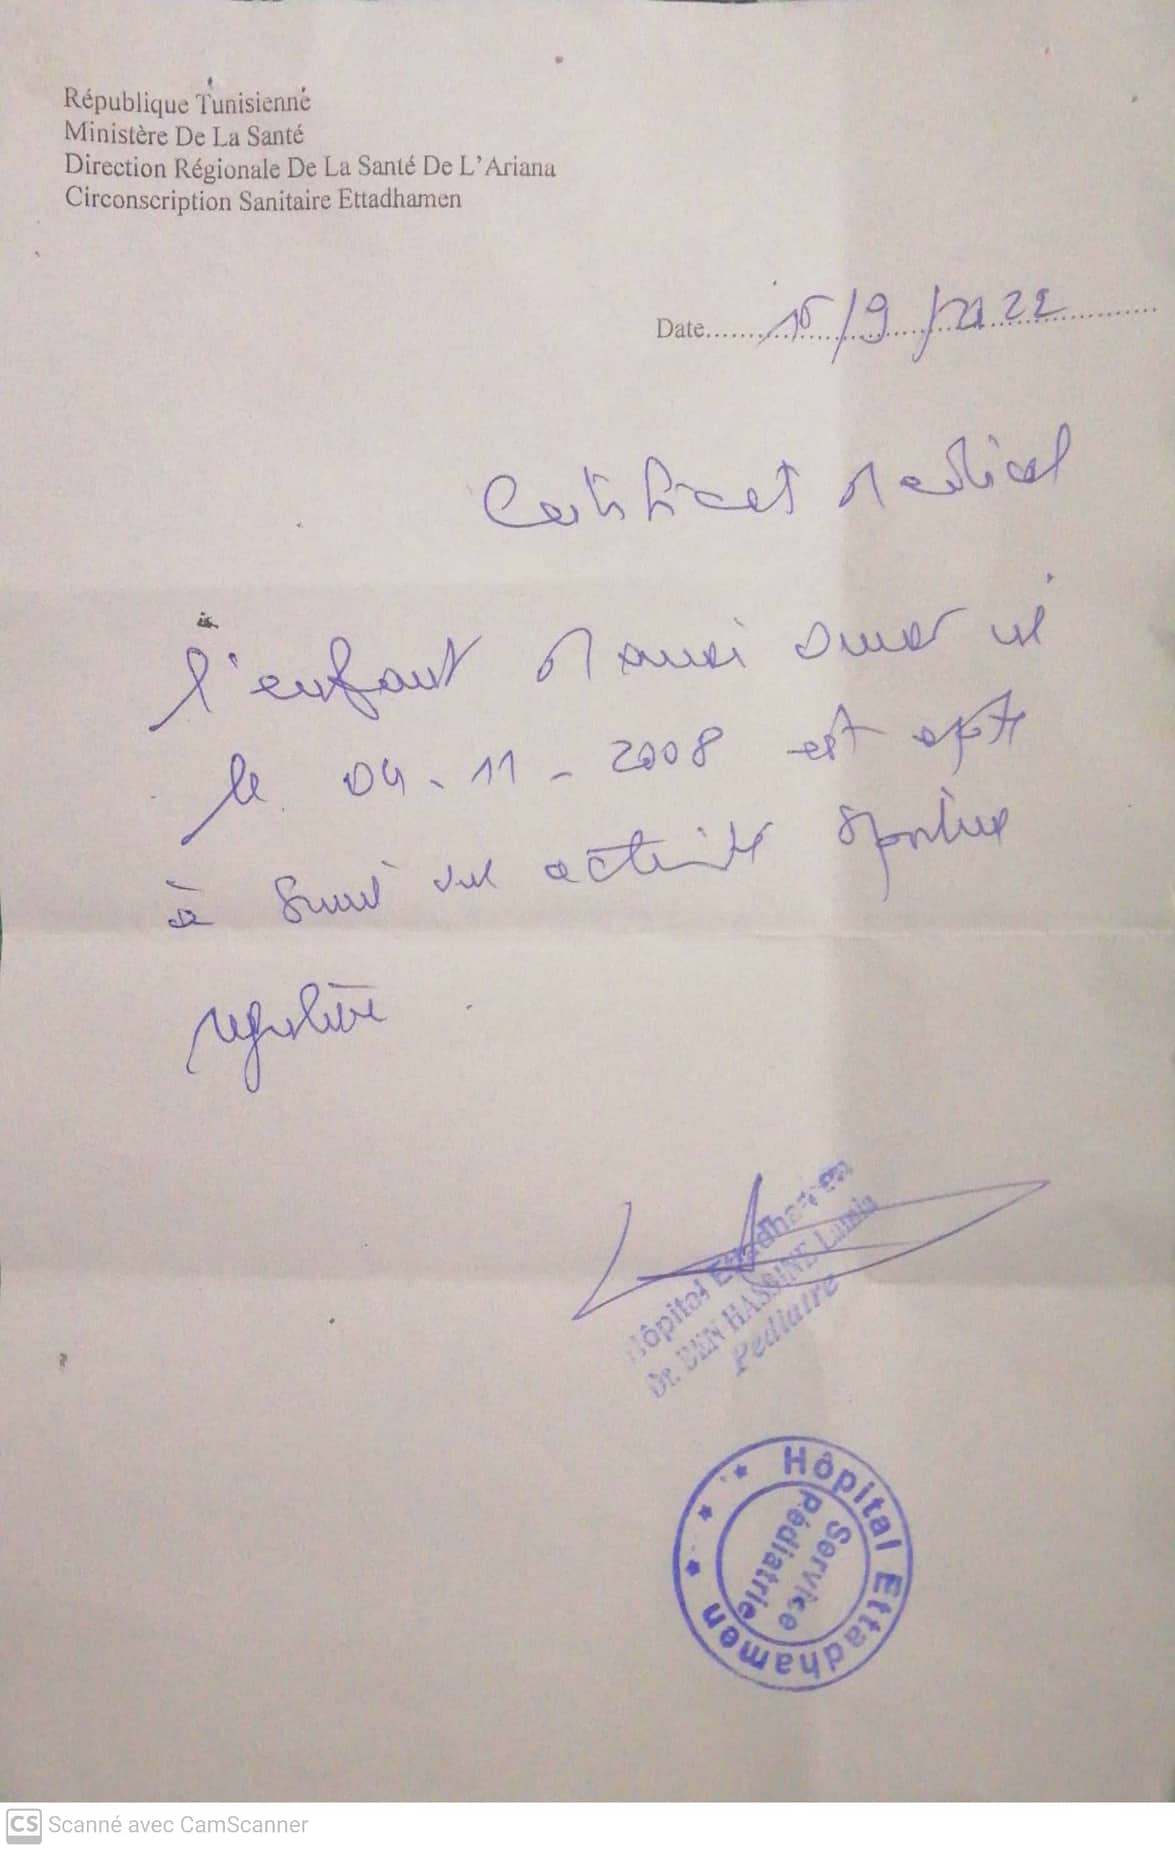 République Tunisienne
Ministère De La Santé
Direction Régionale De La Santé De L'Ariana
Circonscription Sanitaire Ettadhamen
Date 15/9/2022
Certificat Medical
l'enfant Omar né
le 04-11-2008 est apte
à suivre une activité sportive
régulière.
Hôpital Ettadhamen
Dr. BEN HASSINE Lamia
Pédiatre
Hôpital Ettadhamen
Service
Pédiatrie
CS Scanné avec CamScanner